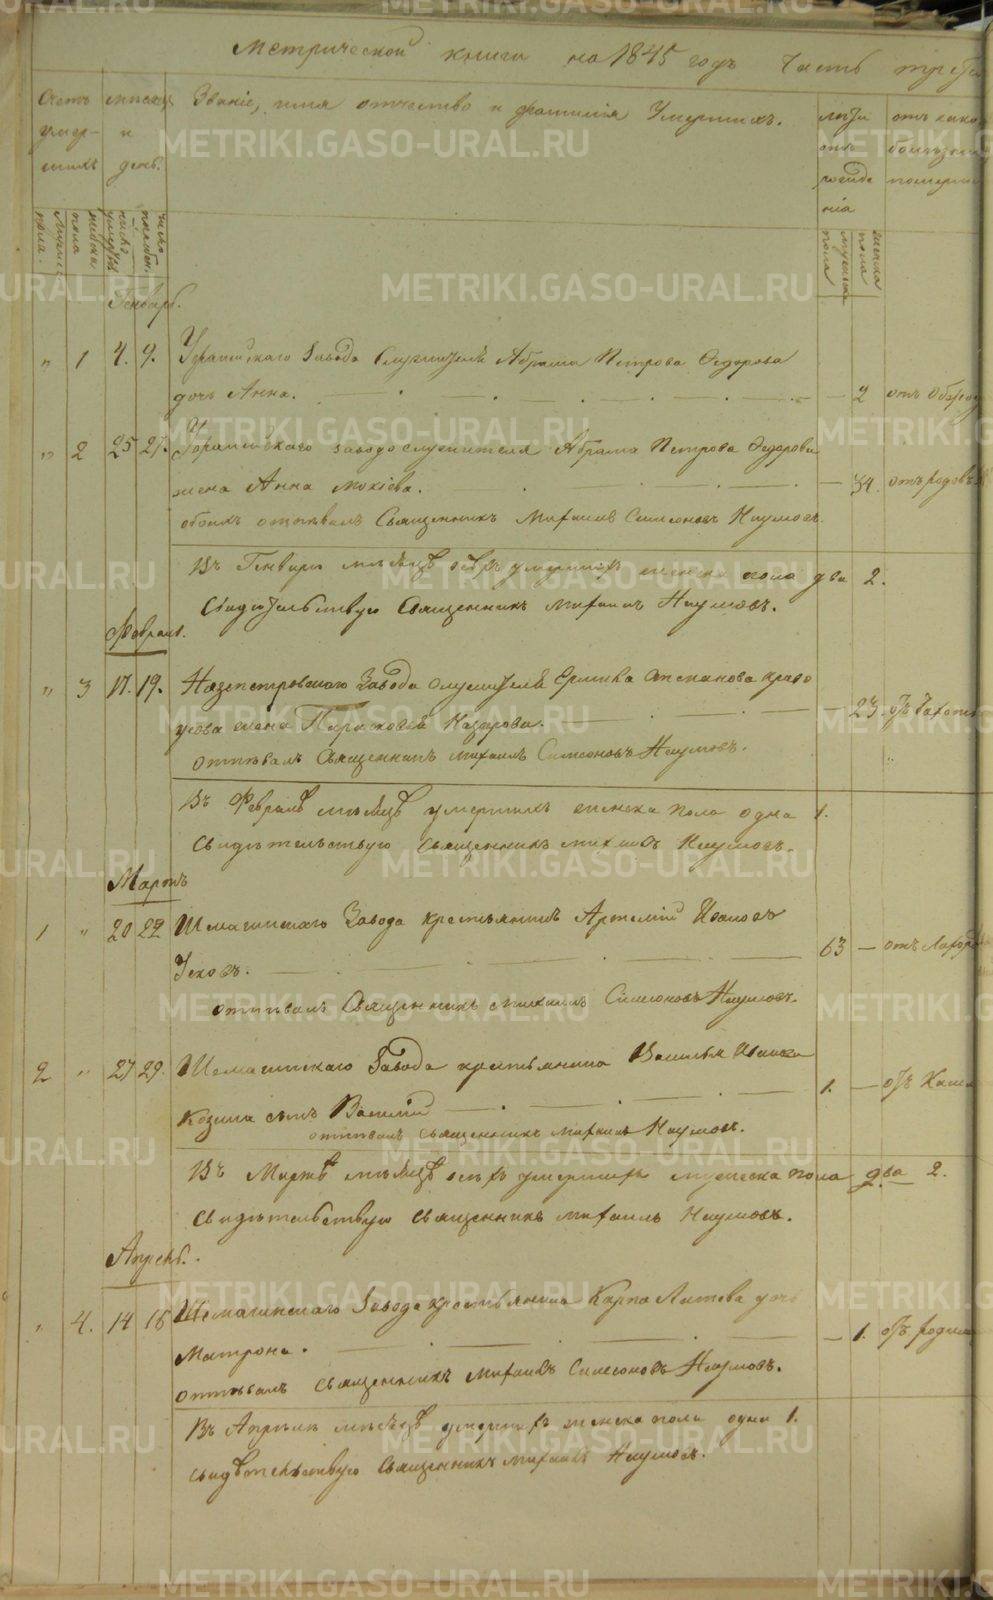 Метрической книги на 1845 годъ Часть
Счетъ умер- шихъ
мѣсяцъ и день.
Званіе, имя отчество и фамилія Умершихъ.
лѣта отъ рожде нія
отъ какой болѣзни померъ
мужеска пола.
женска пола
число умертвія
число погребен.
мужеска пола
женска пола
Генварь.
" 1 4. 9. Уфалейскаго Завода Служителя Абрама Петрова Федорова
дочь Анна. — 2
" 2 25 27. Уфалейскаго завода служителя Абрама Петрова Федорова
жена Анна — 34. отъ родовъ
обоихъ отпѣвалъ Священникъ Михаилъ Симеоновъ Наумовъ.
Въ Генварѣ мѣсяцѣ сихъ умершихъ женска пола два 2.
Свидѣтельствую Священникъ Михаилъ Наумовъ.
Февраль.
" 3 17. 19. Нязепетровскаго Завода служителя
жена Парасковья Назарова. — 23.
отпѣвалъ Священникъ Михаилъ Симеоновъ Наумовъ.
Въ Февралѣ мѣсяцѣ умершихъ женска пола одна 1.
Свидѣтельствую Священникъ Михаилъ Наумовъ.
Мартъ
1 " 20 22 Шемахинскаго Завода крестьянинъ Артемій Ивановъ
63 —
отпѣвалъ Священникъ Михаилъ Симеоновъ Наумовъ.
2 " 27 29. Шемахинскаго Завода крестьянина Василья
Козина сынъ Василій — 1. — отъ
отпѣвалъ Священникъ Михаилъ Наумовъ.
Въ Мартѣ мѣсяцѣ сихъ умершихъ мужеска пола два 2.
Свидѣтельствую Священникъ Михаилъ Наумовъ.
Апрель.
" 4. 14 16 Шемахинскаго Завода крестьянина Карпа дочь
Матрона. — 1. отъ
отпѣвалъ Священникъ Михаилъ Симеоновъ Наумовъ.
Въ Апрѣлѣ мѣсяцѣ умершихъ женска пола одна 1.
Свидѣтельствую Священникъ Михаилъ Наумовъ.
METRIKI.GASO-URAL.RU